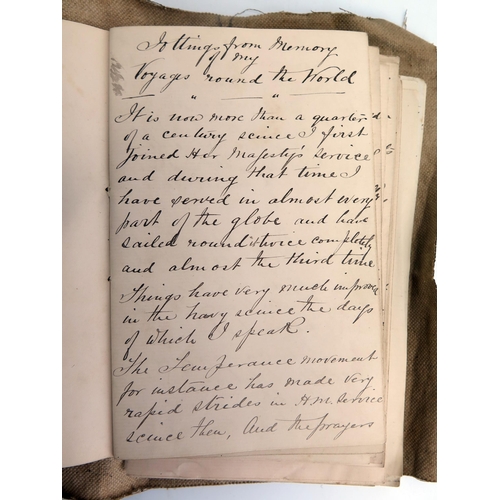 Jottings from Memory
of my
Voyages round the World
It is now more than a quarter
of a century scince I first
joined Her Majesty's service
and during that time I
have served in almost every
part of the globe and have
sailed round it twice completely
and almost the third time
Things have very much improved
in the navy scince the days
of which I speak.
The Temperance movement
for instance has made very
rapid strides in H.M. Service
scince then, And the prayers